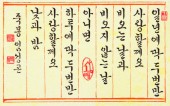 일년에 딱 두번만
사랑할께요
비오는 날과
비오지 않는 날
아니면
하루에 딱 두번만
사랑할께요
낮과 밤